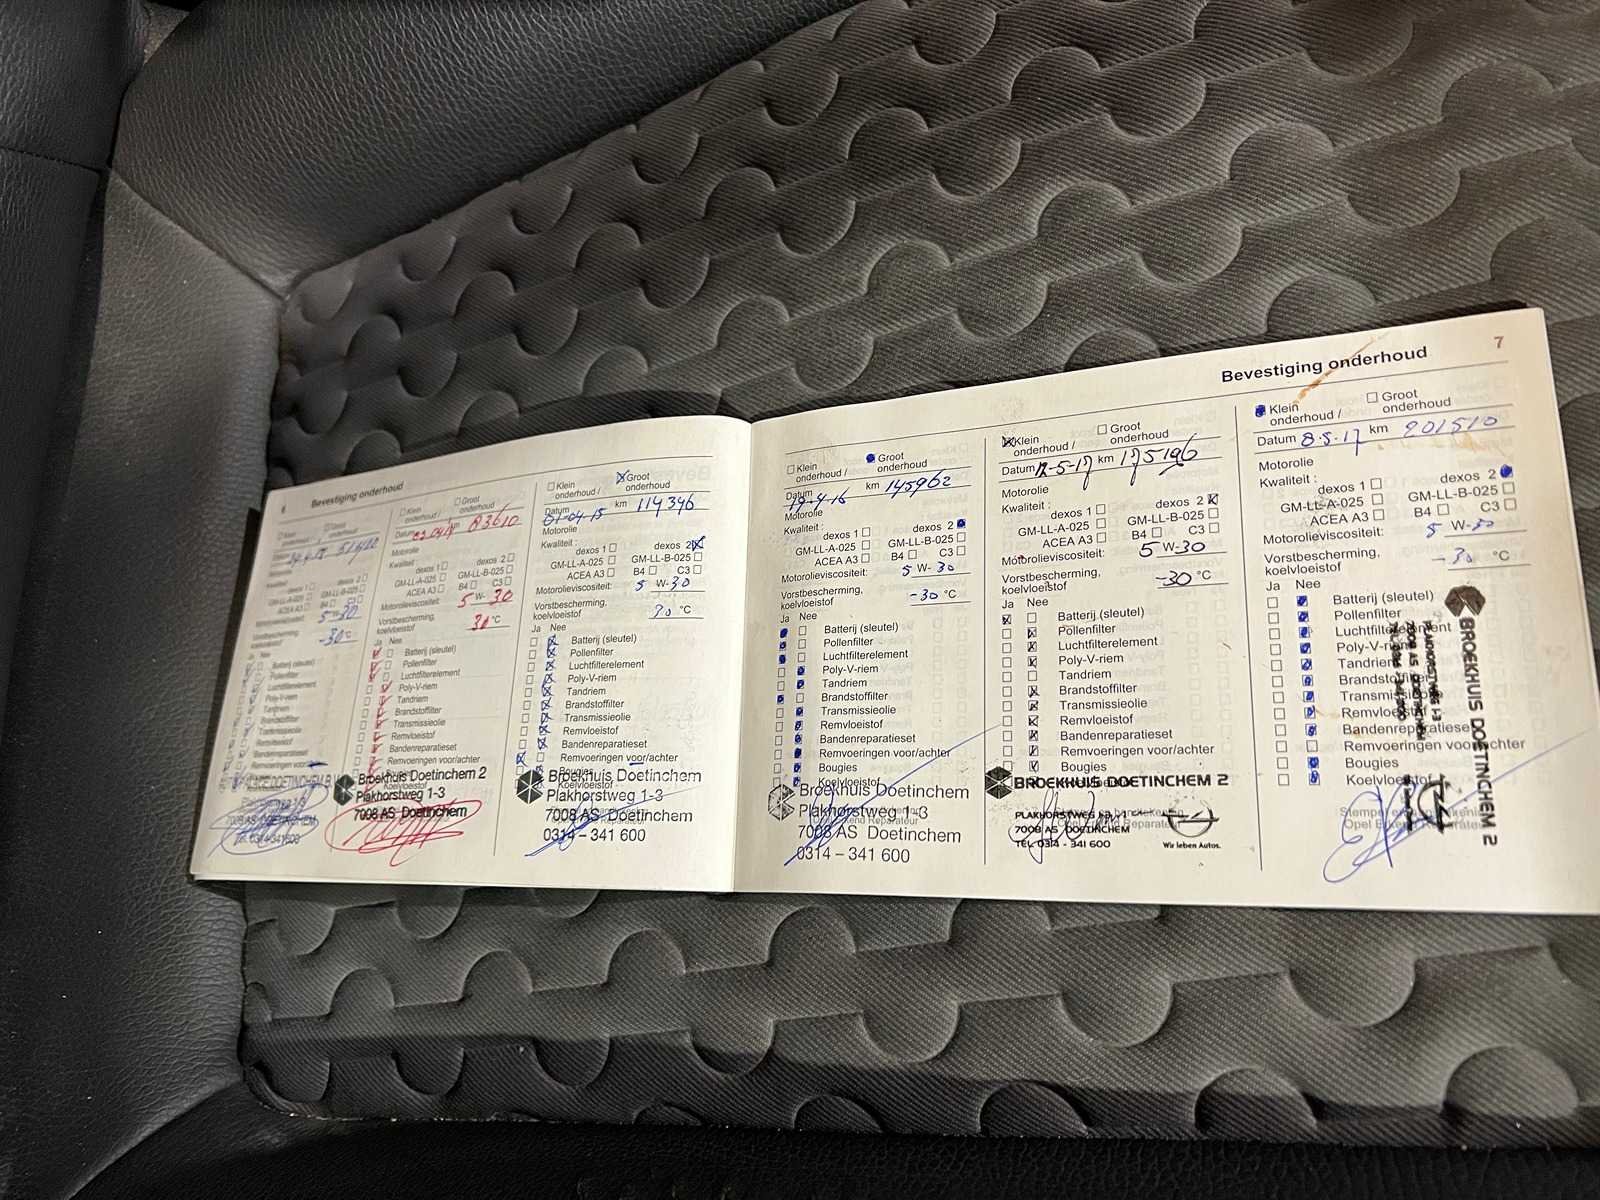 Bevestiging onderhoud
Klein
onderhoud /
Groot
onderhoud
Datum
Motorolie
Kwaliteit :
dexos 1
dexos 2
GM-LL-A-025
GM-LL-B-025
ACEA A3
B4
C3
5 W-30
Vorstbescherming,
koelvloeistof
-30°C
Ja Nee
Batterij (sleutel)
Pollenfilter
Luchtfilterelement
Poly-V-riem
Tandriem
Brandstoffilter
Transmissieolie
Remvloeistof
Bandenreparatieset
Remvoeringen voor/
DOETINCHEM B.V.
Plakhorstweg 1-3
7008 AS DOETINCHEM
Tel. 0314-341600
Klein
onderhoud /
Groot
onderhoud
Datum km 83610
Motorolie
Kwaliteit :
dexos 1
dexos 2
GM-LL-A-025
GM-LL-B-025
ACEA A3
B4
C3
Motorolieviscositeit: 5 W-30
Vorstbescherming,
koelvloeistof
30 °C
Ja Nee
Batterij (sleutel)
Pollenfilter
Luchtfilterelement
Poly-V-riem
Tandriem
Brandstoffilter
Transmissieolie
Remvloeistof
Bandenreparatieset
Remvoeringen voor/achter
Broekhuis Doetinchem 2
Koelvloeistof
Plakhorstweg 1-3
7008 AS Doetinchem
Klein
onderhoud /
Groot
onderhoud
Datum 01-04-15 km 114346
Motorolie
Kwaliteit :
dexos 1
dexos 2
GM-LL-A-025
GM-LL-B-025
ACEA A3
B4
C3
Motorolieviscositeit: 5 W-30
Vorstbescherming,
koelvloeistof
30 °C
Ja Nee
Batterij (sleutel)
Pollenfilter
Luchtfilterelement
Poly-V-riem
Tandriem
Brandstoffilter
Transmissieolie
Remvloeistof
Bandenreparatieset
Remvoeringen voor/achter
Bougies
Broekhuis Doetinchem
Koelvloeistof
Plakhorstweg 1-3
7008 AS Doetinchem
0314 – 341 600
7
Bevestiging onderhoud
Klein
onderhoud /
Groot
onderhoud
Datum 19-4-16 km 145962
Motorolie
Kwaliteit :
dexos 1
dexos 2
GM-LL-A-025
GM-LL-B-025
ACEA A3
B4
C3
Motorolieviscositeit: 5 W-30
Vorstbescherming,
koelvloeistof
-30 °C
Ja Nee
Batterij (sleutel)
Pollenfilter
Luchtfilterelement
Poly-V-riem
Tandriem
Brandstoffilter
Transmissieolie
Remvloeistof
Bandenreparatieset
Remvoeringen voor/achter
Bougies
Koelvloeistof
Broekhuis Doetinchem
Plakhorstweg 1-3
7008 AS Doetinchem
0314 – 341 600
Klein
onderhoud /
Groot
onderhoud
Datum 12-5-17 km 175196
Motorolie
Kwaliteit :
dexos 1
dexos 2
GM-LL-A-025
GM-LL-B-025
ACEA A3
B4
C3
Motorolieviscositeit: 5 W-30
Vorstbescherming,
koelvloeistof
-30 °C
Ja Nee
Batterij (sleutel)
Pollenfilter
Luchtfilterelement
Poly-V-riem
Tandriem
Brandstoffilter
Transmissieolie
Remvloeistof
Bandenreparatieset
Remvoeringen voor/achter
Bougies
BROEKHUIS DOETINCHEM 2
PLAKHORSTWEG 1-3
7008 AS DOETINCHEM
TEL 0314 - 341 600
Wir leben Autos.
Klein
onderhoud /
Groot
onderhoud
Datum 8-5-17 km 201510
Motorolie
Kwaliteit :
dexos 1
dexos 2
GM-LL-A-025
GM-LL-B-025
ACEA A3
B4
C3
Motorolieviscositeit: 5 W-30
Vorstbescherming,
koelvloeistof
-30 °C
Ja Nee
Batterij (sleutel)
Pollenfilter
Luchtfilterelement
Poly-V-riem
Tandriem
Brandstoffilter
Transmissieolie
Remvloeistof
Bandenreparatieset
Remvoeringen voor/achter
Bougies
Koelvloeistof
BROEKHUIS DOETINCHEM 2
PLAKHORSTWEG 1-3
7008 AS DOETINCHEM